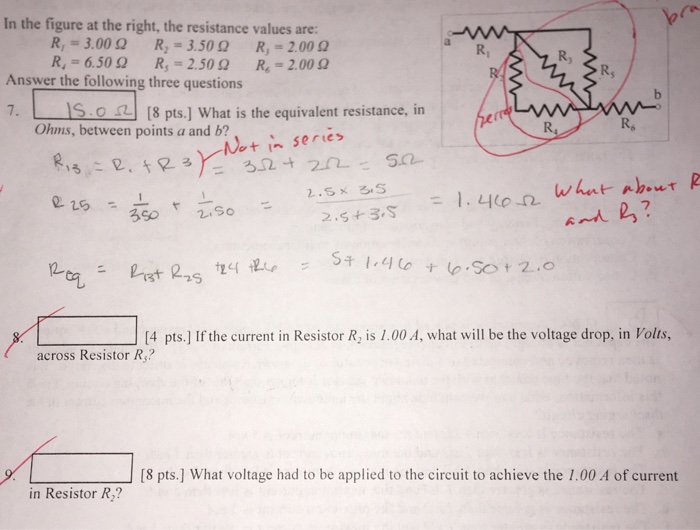 In the figure at the right, the resistance values are:
R₁ = 3.00 Ω R₂ = 3.50 Ω R₃ = 2.00 Ω
R₄ = 6.50 Ω R₅ = 2.50 Ω R₆ = 2.00 Ω
Answer the following three questions
a
R₁
R₃
R₅
R
b
R₄
R₆
7. 15.0 Ω [8 pts.] What is the equivalent resistance, in
Ohms, between points a and b?
Not in series
R₁₃ = R₁ + R3 = 3Ω + 2Ω = 5Ω
R 25 = 1/350 + 1/2.50 = 2.5 x 3.5 / 2.5 + 3.5 = 1.46 Ω
What about R
and R₃?
Req = R13 + R25 + R4 + R6 = 5 + 1.46 + 6.50 + 2.0
8. [4 pts.] If the current in Resistor R₂ is 1.00 A, what will be the voltage drop, in Volts,
across Resistor R₅?
9. [8 pts.] What voltage had to be applied to the circuit to achieve the 1.00 A of current
in Resistor R₂?